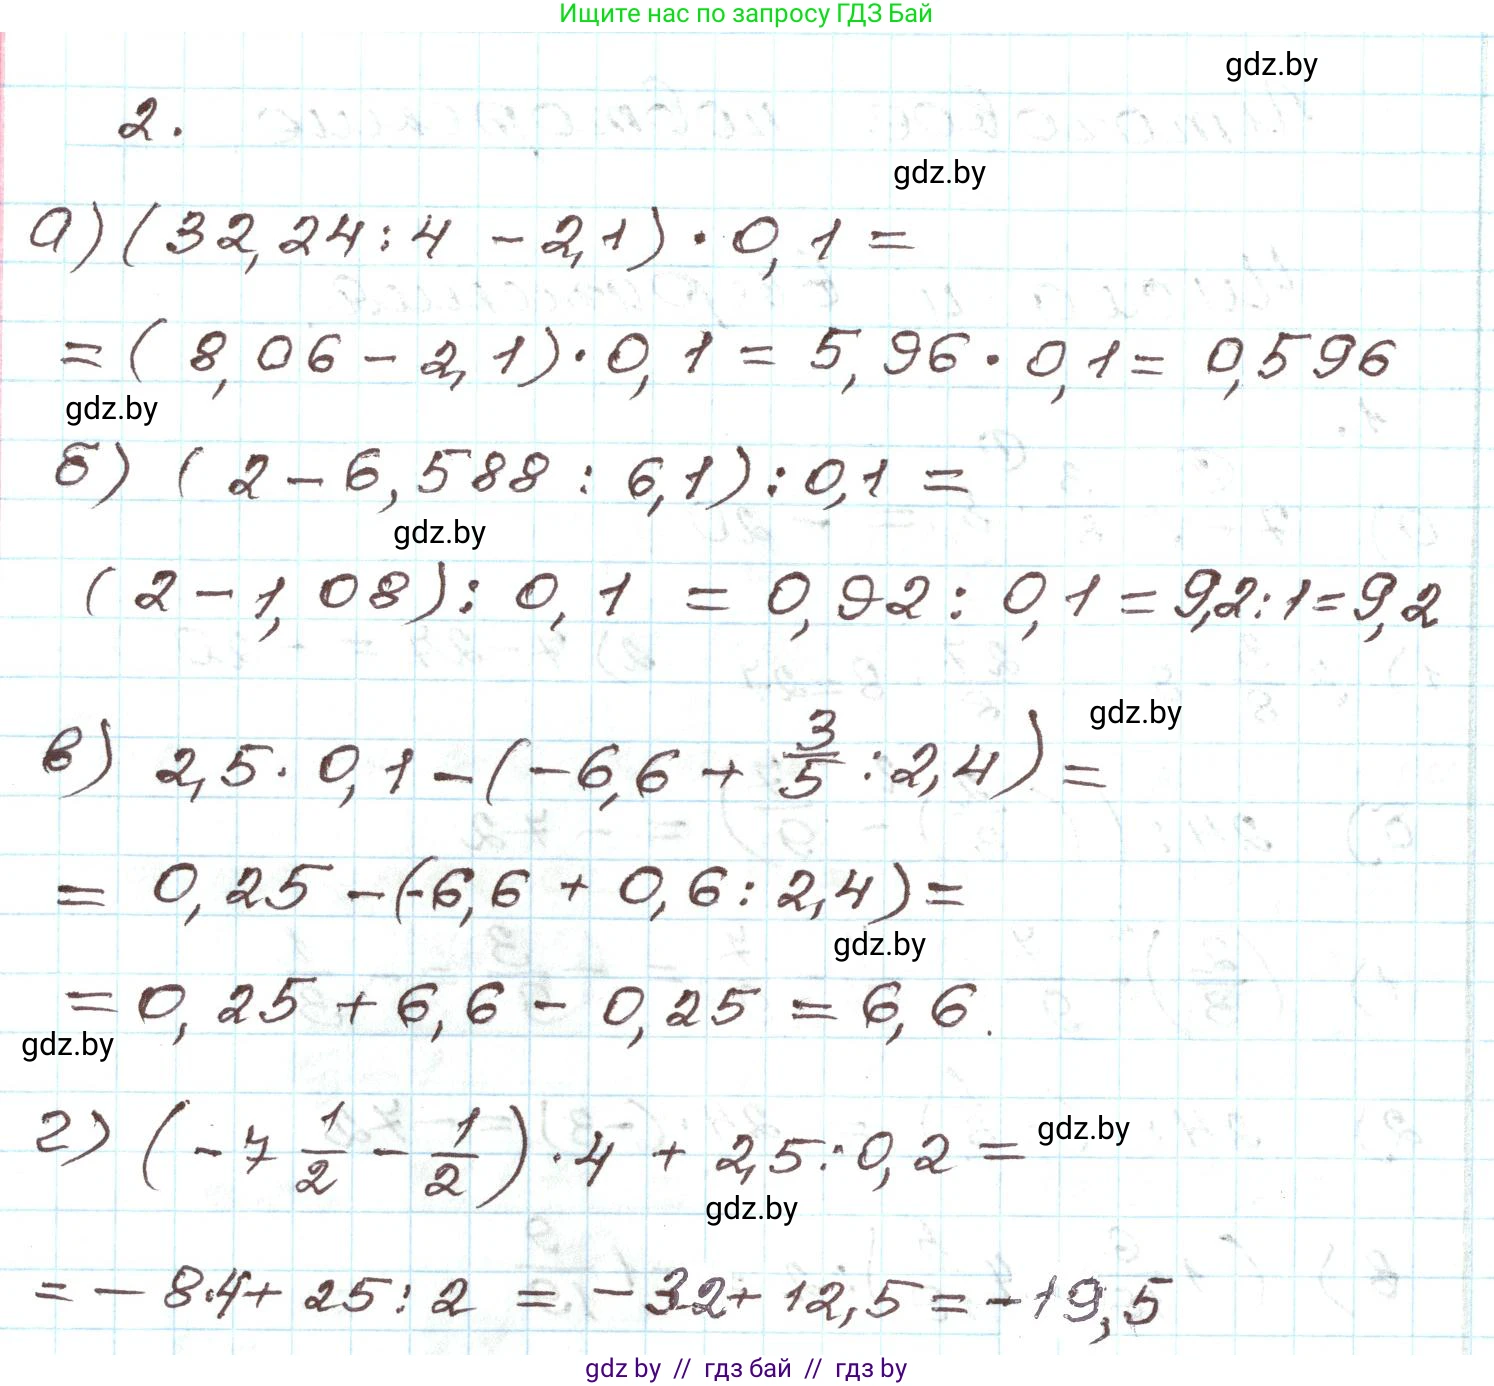 Ищите нас по запросу ГДЗ Бай
gdz.by
2.
gdz.by
а) (32,24:4 - 2,1) · 0,1 =
= (8,06 - 2,1) · 0,1 = 5,96 · 0,1 = 0,596
gdz.by
б) (2 - 6,588 : 6,1) : 0,1 =
gdz.by
(2 - 1,08) : 0,1 = 0,92 : 0,1 = 9,2 : 1 = 9,2
gdz.by
в) 2,5 · 0,1 - (-6,6 + 3/5 : 2,4) =
= 0,25 - (-6,6 + 0,6 : 2,4) =
gdz.by
= 0,25 + 6,6 - 0,25 = 6,6.
gdz.by
г) (-7 1/2 - 1/2) · 4 + 2,5 : 0,2 =
gdz.by
gdz.by
= - 8·4 + 25 : 2 = - 32 + 12,5 = -19,5
gdz by // гдз бай // гдз by